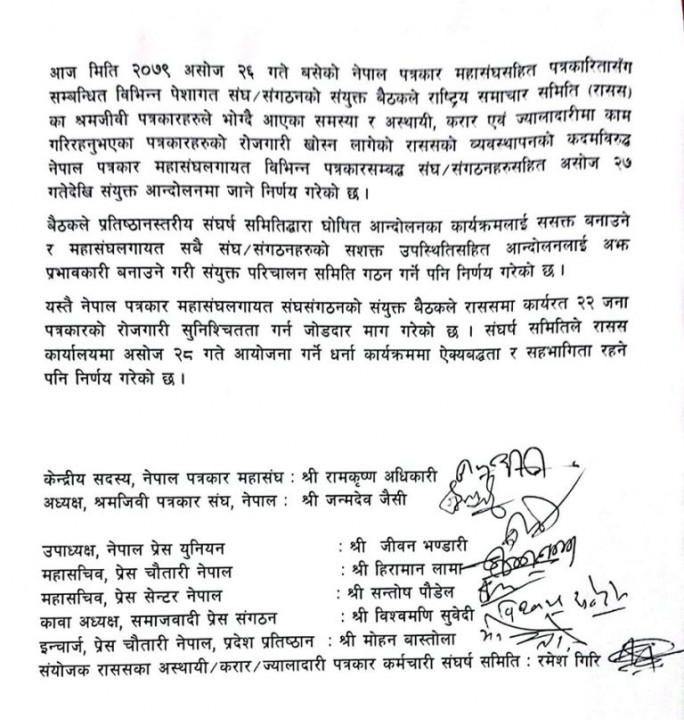 आज मिति २०७९ असोज २६ गते बसेको नेपाल पत्रकार महासंघसहित पत्रकारितासँग
सम्बन्धित विभिन्न पेशागत संघ/संगठनको संयुक्त बैठकले राष्ट्रिय समाचार समिति (रासस)
का श्रमजीवी पत्रकारहरुले भोग्दै आएका समस्या र अस्थायी, करार एवं ज्यालादारीमा काम
गरिरहनुभएका पत्रकारहरुको रोजगारी खोस्न लागेको राससको व्यवस्थापनको कदमविरुद्ध
नेपाल पत्रकार महासंघलगायत विभिन्न पत्रकारसम्बद्ध संघ/संगठनहरुसहित असोज २७
गतेदेखि संयुक्त आन्दोलनमा जाने निर्णय गरेको छ ।
बैठकले प्रतिष्ठानस्तरीय संघर्ष समितिद्वारा घोषित आन्दोलनका कार्यक्रमलाई ससक्त बनाउने
र महासंघलगायत सबै संघ/संगठनहरुको सशक्त उपस्थितिसहित आन्दोलनलाई अझ
प्रभावकारी बनाउने गरी संयुक्त परिचालन समिति गठन गर्ने पनि निर्णय गरेको छ ।
यस्तै नेपाल पत्रकार महासंघलगायत संघसंगठनको संयुक्त बैठकले राससमा कार्यरत २२ जना
पत्रकारको रोजगारी सुनिश्चितता गर्न जोडदार माग गरेको छ । संघर्ष समितिले रासस
कार्यालयमा असोज २८ गते आयोजना गर्ने धर्ना कार्यक्रममा ऐक्यबद्धता र सहभागिता रहने
पनि निर्णय गरेको छ ।
केन्द्रीय सदस्य, नेपाल पत्रकार महासंघ : श्री रामकृष्ण अधिकारी
अध्यक्ष, श्रमजिवी पत्रकार संघ, नेपाल : श्री जन्मदेव जैसी
उपाध्यक्ष, नेपाल प्रेस युनियन : श्री जीवन भण्डारी
महासचिव, प्रेस चौतारी नेपाल : श्री हिरामान लामा
महासचिव, प्रेस सेन्टर नेपाल : श्री सन्तोष पौडेल
कावा अध्यक्ष, समाजवादी प्रेस संगठन : श्री विश्वमणि सुवेदी
इन्चार्ज, प्रेस चौतारी नेपाल, प्रदेश प्रतिष्ठान : श्री मोहन बास्तोला
संयोजक राससका अस्थायी/करार/ज्यालादारी पत्रकार कर्मचारी संघर्ष समिति : रमेश गिरि